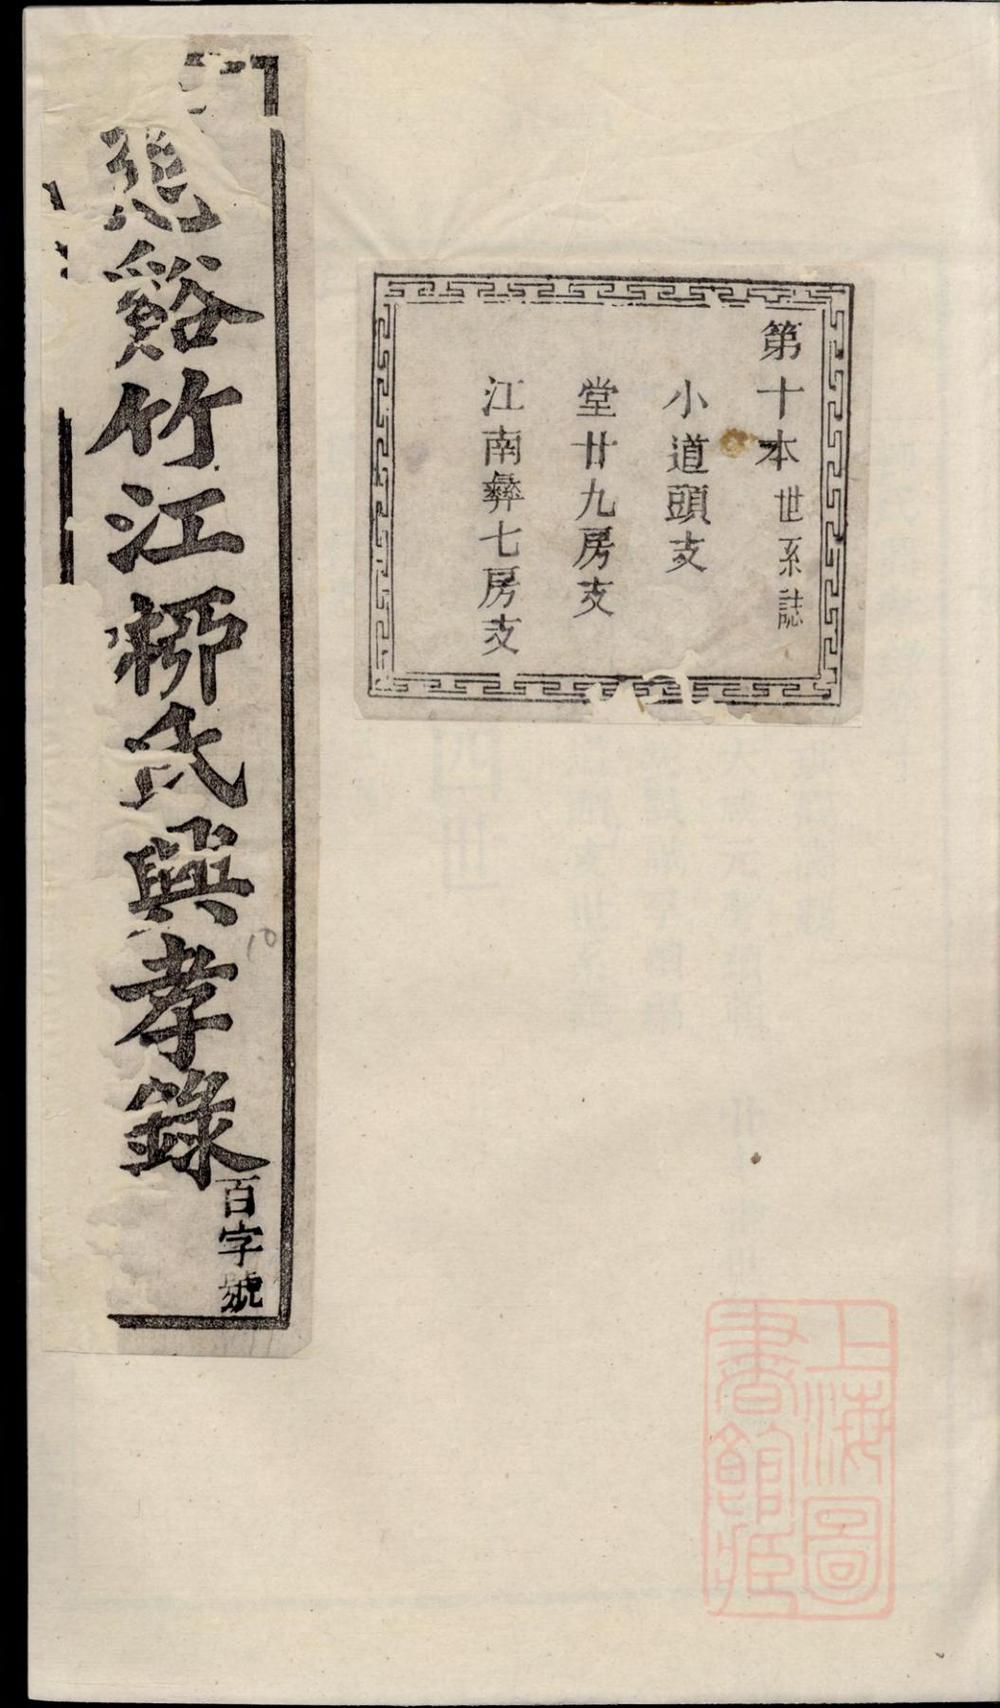 第十本世系誌
小道頭支
堂廿九房支
江南彝七房支
慈谿竹江桺氏興孝錄
百字號
10
上海圖
書館藏